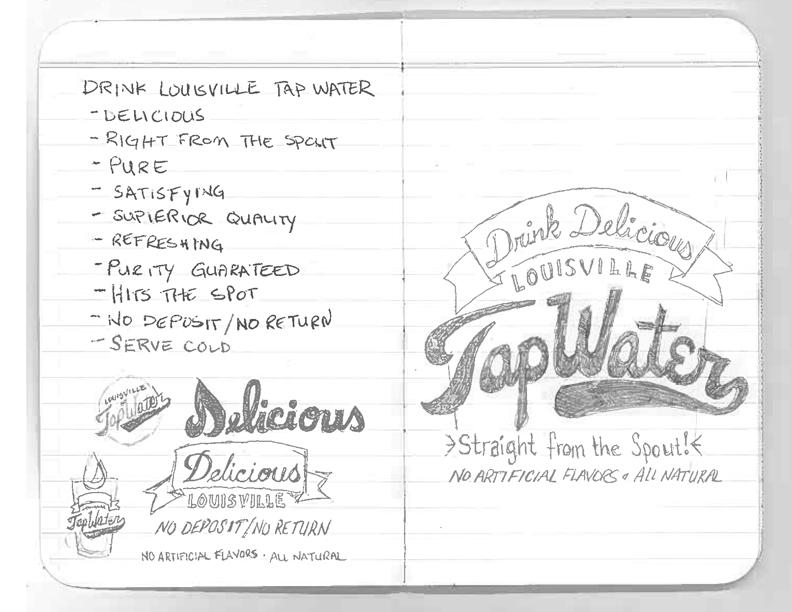 DRINK LOUISVILLE TAP WATER
- DELICIOUS
- RIGHT FROM THE SPOUT
- PURE
- SATISFYING
- SUPIERIOR QUALITY
- REFRESHING
- PURITY GUARATEED
- HITS THE SPOT
- NO DEPOSIT/NO RETURN
- SERVE COLD
LOUISVILLE
TapWater
Delicious
Delicious
LOUISVILLE
TapWater
NO DEPOSIT/NO RETURN
NO ARTIFICIAL FLAVORS · ALL NATURAL
Drink Delicious
LOUISVILLE
TapWater
Straight from the Spout!
NO ARTIFICIAL FLAVORS • ALL NATURAL